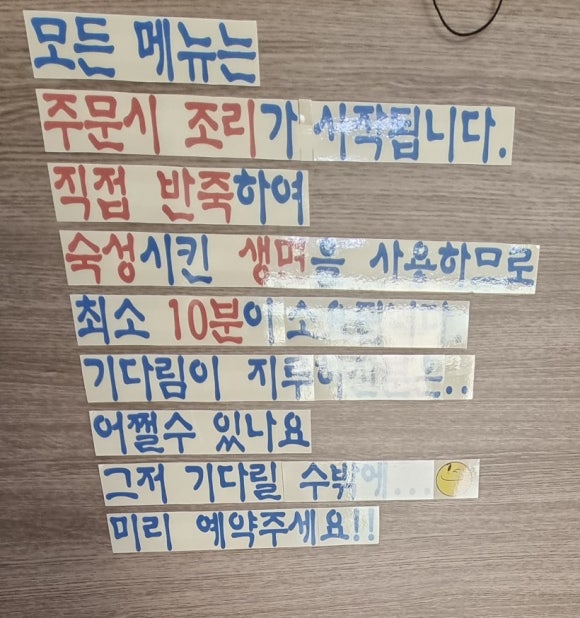 모든 메뉴는
주문시 조리가 시작됩니다.
직접 반죽하여
숙성시킨 생면을 사용하므로
최소 10분이
기다림이
어쩔수 있나요
그저 기다릴 수밖에...
미리 예약주세요!!